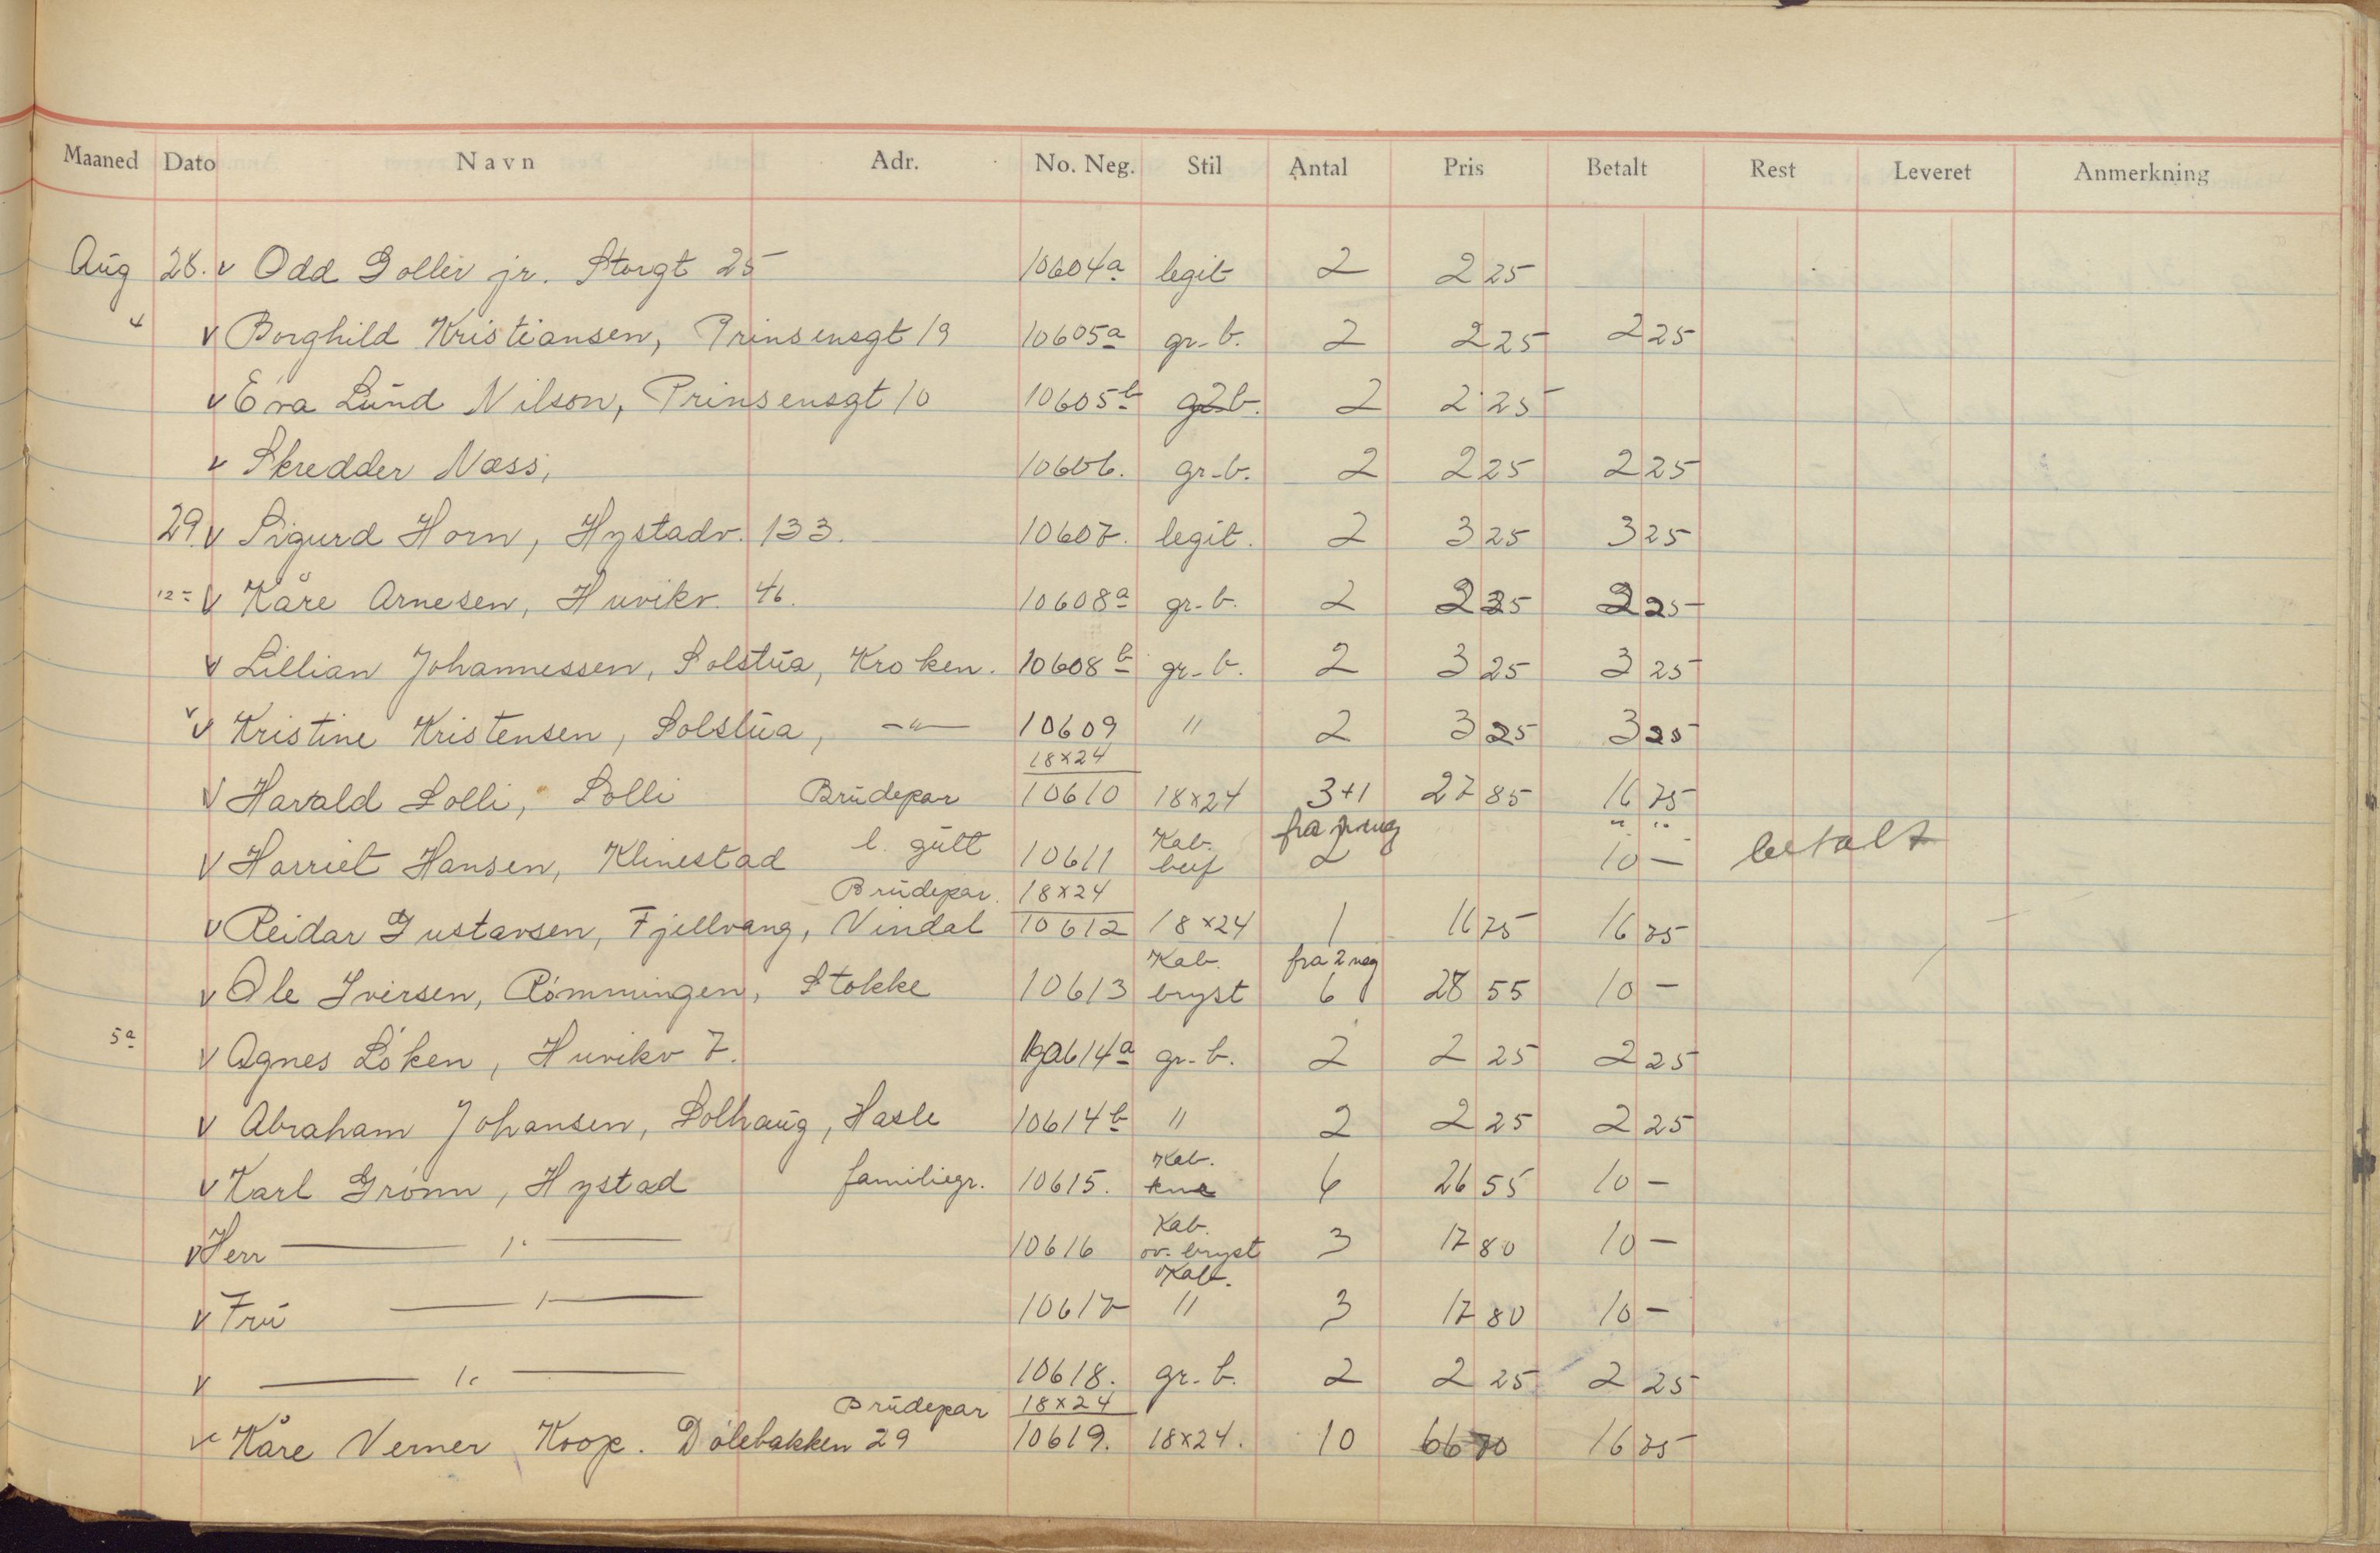 Maaned Dato Navn Adr. No. Neg. Stil Antal Pris Betalt Rest Leveret Anmerkning
Aug 28. v Odd Gollev jr. Storgt 25 10604a legit 2 2 25
v Borghild Kristiansen, Prinsensgt 19 10605a gr-b. 2 2 25 2 25
v Eva Lund Nilson, Prinsensgt 10 10605b 2 2 25
v Skredder Næss, 10606. gr-b. 2 2 25 2 25
29. v Sigurd Horn, Hystadv. 133. 10607. legit. 2 3 25 3 25
12= v Kåre Arnesen, Huvikv. 46. 10608a gr-b. 2 2 25 2 25
v Lillian Johannessen, Solstua, Kroken. 10608b gr-b. 2 3 25 3 25
v v Kristine Kristensen, Solstua, —"— 10609 " 2 3 25 3 25
18x24
v Harald Solli, Solli Brudepar 10610 18x24 3+1 27 85 16 75
l. gutt Kab. fra " "
v Harriet Hansen, Klinestad 10611 2 10 — betalt
Brudepar. 18x24
v Reidar Gustavsen, Fjellvang, Vindal 10612 18x24 1 16 75 16 75
Kab. fra 2 neg
v Ole Iversen, Rømmingen, Stokke 10613 bryst 6 28 55 10 —
5a
v Agnes Løken, Huvikv 7. 10614a gr-b. 2 2 25 2 25
v Abraham Johansen, Solhaug, Hasle 10614b " 2 2 25 2 25
Kab.
v Karl Grønn, Hystad familiegr. 10615. kne 6 26 55 10 —
Kab.
v Herr —"— 10616 ov. bryst 3 17 80 10 —
Kab.
v Fru —"— 10617 " 3 17 80 10 —
v —"— 10618. gr-b. 2 2 25 2 25
Brudepar 18x24
v Kåre Verner Koop. Dølebakken 29 10619. 18x24. 10 66 70 16 75